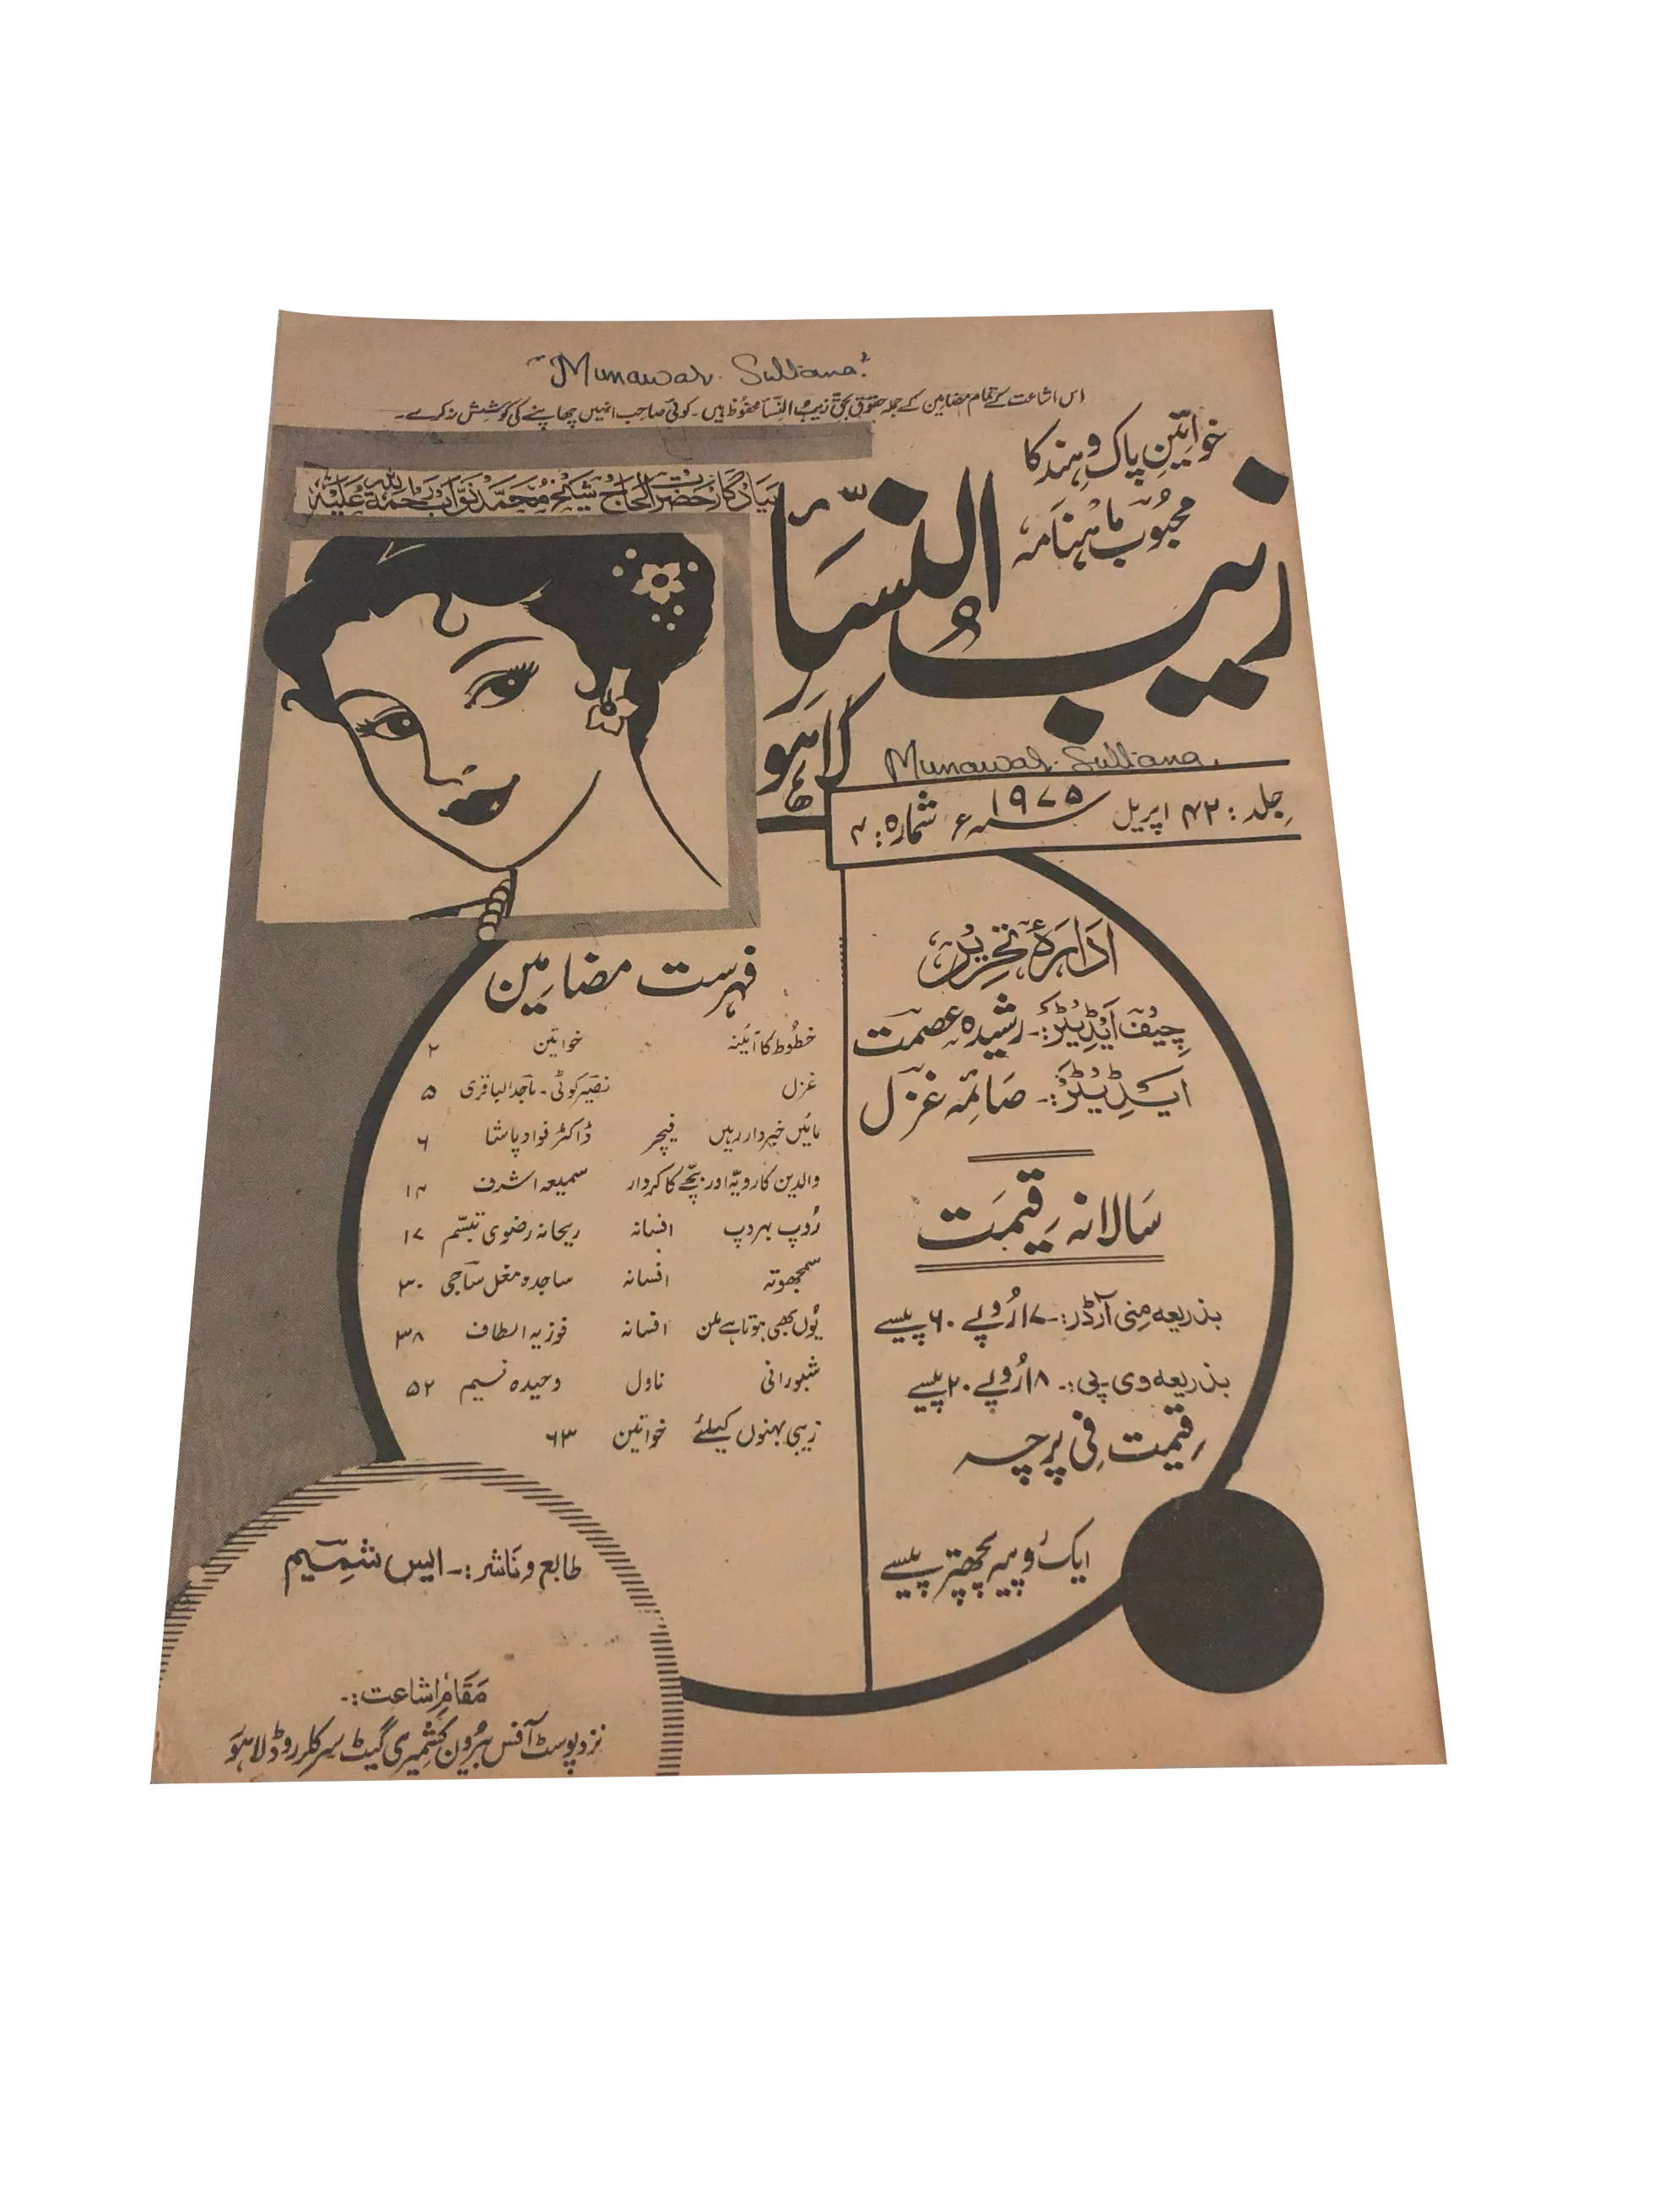 "Munawar Sultana"
اس اشاعت کے تمام مضامین کے جملہ حقوق بحق زیب النسا محفوظ ہیں۔ کوئی صاحب انہیں چھاپنے کی کوشش نہ کرے۔
خواتینِ پاک و ہند کا
محبُوب ماہنامہ
بیادگار حضرت الحاج شیخ محمد نواب رحمۃ اللہ علیہ
زیبُ النسّاء
لاہور
Munawar Sultana.
جِلد: ۴۲ اپریل ۱۹۷۵ء شمارہ: ۴
ادارۂ تحریر
چیف ایڈیٹر:۔ رشیدہ عصمت
ایڈیٹر:۔ صائمہ غزل
سالانہ قیمت
بذریعہ منی آرڈر:۔ ۱۷ رُوپے ۶۰ پیسے
بذریعہ وی پی:۔ ۱۸ رُوپے ۲۰ پیسے
قیمت فی پرچہ
ایک روپیہ پچھتر پیسے
فہرست مضامین
خطُوط کا آئینہ خواتین ۲
غزل نصیر کوٹی۔ ماجد الباقری ۵
مائیں خبردار رہیں فیچر ڈاکٹر فواد پاشا ۶
والدین کا رویّہ اور بچّے کا کردار سمیعہ اشرف ۱۴
رُوپ بہروپ افسانہ ریحانہ رضوی تبسّم ۱۷
سمجھوتہ افسانہ ساجدہ مغل ساجی ۳۰
یُوں بھی ہوتا ہے ملن افسانہ فوزیہ الطاف ۳۸
شبورانی ناول وحیدہ نسیم ۵۲
زیبی بہنوں کیلئے خواتین ۶۳
طابع و ناشر:۔ ایس شمیم
مقامِ اشاعت:۔
نزد پوسٹ آفس بیرُون کشمیری گیٹ سرکلر روڈ لاہور